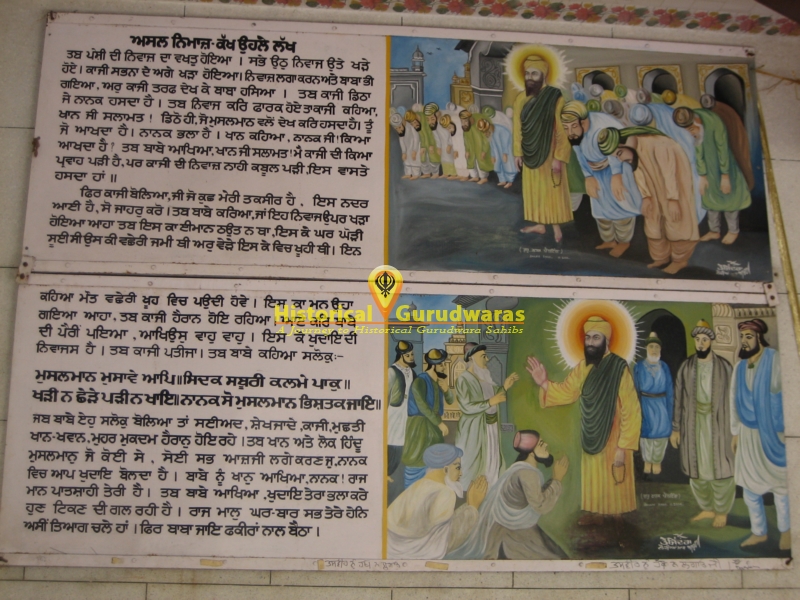 ਅਸਲ ਨਿਮਾਜ਼-ਕੱਖ ਉਹਲੇ ਲੱਖ
ਤਬ ਪੰਸੀ ਦੀ ਨਿਵਾਜ ਦਾ ਵਖਤੁ ਹੋਇਆ । ਸਭੇ ਉਠੁ ਨਿਵਾਜ ਉਤੇ ਖੜੇ
ਹੋਏ। ਕਾਜੀ ਸਭਨਾ ਦੇ ਅਗੇ ਖੜਾ ਹੋਇਆ। ਨਿਵਾਜ ਲਗਾ ਕਰਨ ਅਤੇ ਬਾਬਾ ਭੀ
ਗਇਆ, ਅਰੁ ਕਾਜੀ ਤਰਫ ਦੇਖ ਕੇ ਬਾਬਾ ਹਸਿਆ । ਤਬ ਕਾਜੀ ਡਿਠਾ
ਜੋ ਨਾਨਕ ਹਸਦਾ ਹੈ। ਤਬ ਨਿਵਾਜ ਕਰਿ ਫਾਰਕ ਹੋਏ ਤਾ ਕਾਜੀ ਕਹਿਆ,
ਖਾਨ ਜੀ ਸਲਾਮਤ! ਡਿਠੋ ਹੀ, ਜੋ ਮੁਸਲਮਾਨ ਵਲੋਂ ਦੇਖ ਕਰਿ ਹਸਦਾ ਹੈ। ਤੂੰ
ਜੋ ਆਖਦਾ ਹੈ। ਨਾਨਕ ਭਲਾ ਹੈ। ਖਾਨ ਕਹਿਆ, ਨਾਨਕ ਜੀ! ਕਿਆ
ਆਖਦਾ ਹੈ? ਤਬ ਬਾਬੇ ਆਖਿਆ, ਖਾਨ ਜੀ ਸਲਾਮਤ! ਮੈ ਕਾਜੀ ਦੀ ਕਿਆ
ਪ੍ਰਵਾਹ ਪੜੀ ਹੈ, ਪਰ ਕਾਜੀ ਦੀ ਨਿਵਾਜ ਨਾਹੀ ਕਬੂਲ ਪੜੀ, ਇਸ ਵਾਸਤੇ
ਹਸਦਾ ਹਾਂ ॥
ਫਿਰ ਕਾਜੀ ਬੋਲਿਆ, ਜੀ ਜੋ ਕੁਛ ਮੇਰੀ ਤਕਸੀਰ ਹੈ, ਇਸ ਨਦਰ
ਆਈ ਹੈ, ਸੋ ਜਾਹਰੁ ਕਰੋ। ਤਬ ਬਾਬੇ ਕਹਿਆ, ਜਾਂ ਇਹ ਨਿਵਾਜ ਉਪਰ ਖੜਾ
ਹੋਇਆ ਆਹਾ ਤਬ ਇਸ ਕਾ ਈਮਾਨ ਠਉਤ ਨ ਥਾ, ਇਸ ਕੇ ਘਰ ਘੋੜੀ
ਸੂਈ ਸੀ ਉਸ ਕੀ ਵਛੇਰੀ ਜਮੀ ਥੀ ਅਰੁ ਵੇੜੇ ਇਸ ਕੇ ਵਿਚ ਖੂਹੀ ਥੀ। ਇਨ
ਕਹਿਆ ਮੱਤ ਵਛੇਰੀ ਖੂਹ ਵਿਚ ਪਉਦੀ ਹੋਵੇ। ਇਸ ਕਾ ਮਨ ਉਹਾ
ਗਇਆ ਆਹਾ, ਤਬ ਕਾਜੀ ਹੈਰਾਨ ਹੋਇ ਰਹਿਆ
ਦੀ ਪੈਰੀਂ ਪਇਆ, ਆਖਿਉਸ ਵਾਹੁ ਵਾਹੁ । ਇਸ ਕੇ ਖੁਦਾਇ ਦੀ
ਨਿਵਾਜਸ ਹੈ। ਤਬ ਕਾਜੀ ਪਤੀਜਾ। ਤਬ ਬਾਬੇ ਕਹਿਆ ਸਲੋਕੁ:-
ਮੁਸਲਮਾਨ ਮੁਸਾਵੇ ਆਪਿ॥ ਸਿਦਕ ਸਬੂਰੀ ਕਲਮੇ ਪਾਕੁ॥
ਖੜੀ ਨ ਛੇੜੇ ਪੜੀ ਨ ਖਾਇ॥ ਨਾਨਕ ਸੋ ਮੁਸਲਮਾਨ ਭਿਸ਼ਤਕ ਜਾਇ॥
ਜਬ ਬਾਬੇ ਏਹੁ ਸਲੋਕੁ ਬੋਲਿਆ ਤਾਂ ਸਈਅਦ, ਸ਼ੇਖਜਾਦੇ, ਕਾਜੀ, ਮੁਫਤੀ
ਖਾਨ-ਖਵਾਨ, ਮੁਹਰ ਮੁਕਦਮ ਹੈਰਾਨੁ ਹੋਇ ਰਹੇ। ਤਬ ਖਾਨ ਅਤੇ ਲੋਕ ਹਿੰਦੂ
ਮੁਸਲਮਾਨੁ ਜੋ ਕੋਈ ਸੇ, ਸੋਈ ਸਭ ਆਜ਼ਜੀ ਲਗੇ ਕਰਣ ਜੁ, ਨਾਨਕ
ਵਿਚ ਆਪ ਖੁਦਾਇ ਬੋਲਦਾ ਹੈ। ਬਾਬੇ ਨੂੰ ਖਾਨੁ ਆਖਿਆ, ਨਾਨਕ! ਰਾਜ
ਮਾਨ ਪਾਤਸ਼ਾਹੀ ਤੇਰੀ ਹੈ। ਤਬ ਬਾਬੇ ਆਖਿਆ, ਖੁਦਾਇ ਤੇਰਾ ਭਲਾ ਕਰੇ
ਹੁਣ ਟਿਕਣ ਦੀ ਗਲ ਰਹੀ ਹੈ। ਰਾਜ ਮਾਲੁ ਘਰ-ਬਾਰ ਸਭ ਤੇਰੇ ਹੇਨਿ
ਅਸੀਂ ਤਿਆਗ ਚਲੇ ਹਾਂ। ਫਿਰ ਬਾਬਾ ਜਾਇ ਫਕੀਰਾਂ ਨਾਲ ਬੈਠਾ।
Historical Gurudwaras
A Journey to Historical Gurudwara Sahibs